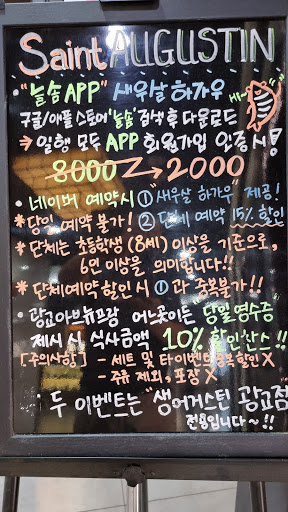 Saint AUGUSTIN
• "늘솜 APP" 새우살 하가우
구글/애플 스토어 '늘솜' 검색 후 다운로드
→ 일행 모두 APP 회원가입 인증 시!
8000 → 2000
• 네이버 예약시 ① "새우살 하가우" 제공!
* 당일 예약 불가! ② 단체 예약 15% 할인
* 단체는 초등학생 (8세) 이상을 기준으로,
6인 이상을 의미합니다!!
* 단체예약 할인 시 ①과 중복불가!!
• 광교아브뉴프랑 어느곳이든 당일 영수증
제시 시 식사금액 10% 할인찬스!!
[주의사항] - 세트 및 타이벤트 중복할인 X
- 주류 제외, 포장 X
• 두 이벤트는 "생어거스틴 광교점"
전용입니다~!!